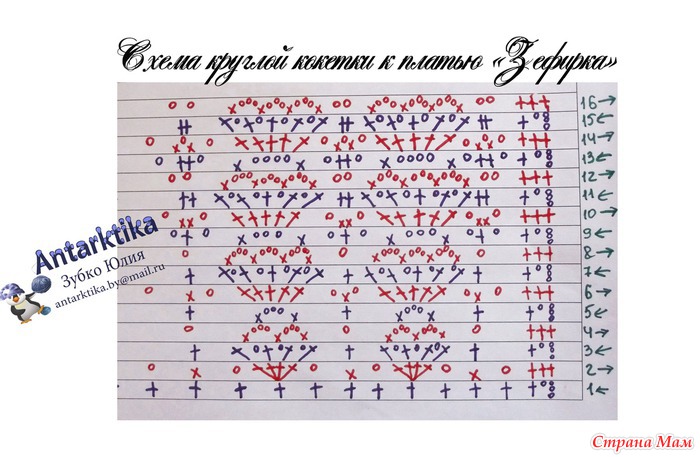 Схема круглой кокетки к платью «Зефирка»
16→
15←
14→
13←
12→
11←
10→
9←
8→
7←
6→
5←
4→
3←
2→
1←
Antarktika
Зубко Юлия
antarktika.by@mail.ru
Страна Мам